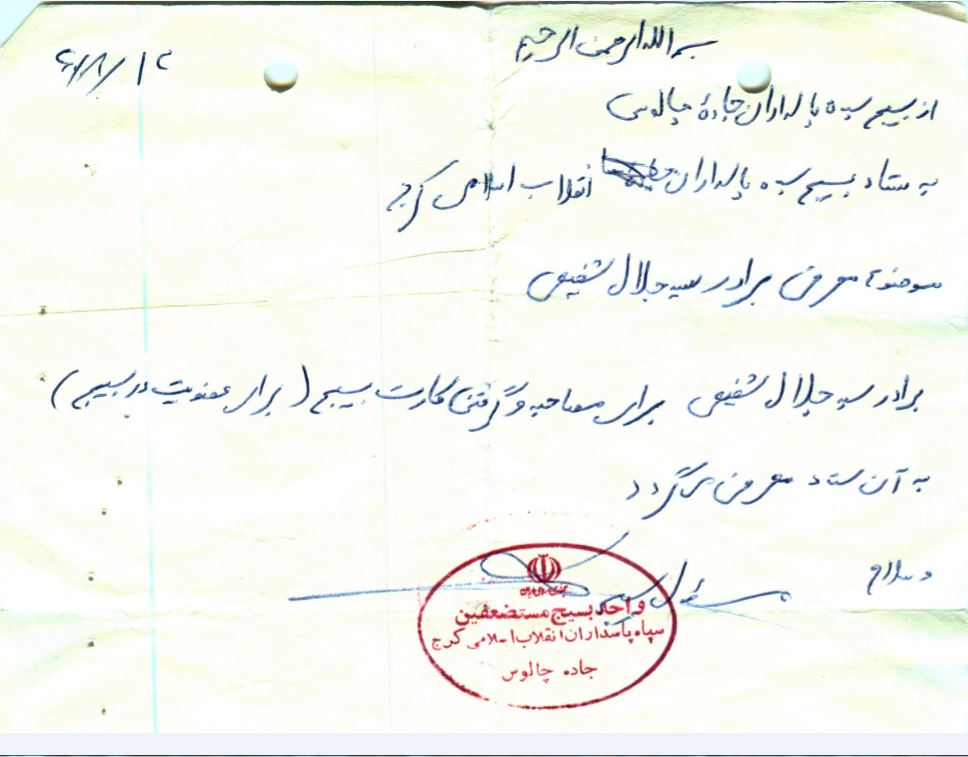 بسم الله الرحمن الرحیم
از بسیج سپاه پاسداران جادهٔ چالوس
به ستاد بسیج سپاه پاسداران انقلاب اسلامی کرج
موضوع: معرفی برادر سید جلال شفیعی
برادر سید جلال شفیعی برای مصاحبه و گرفتن کارت بسیج (برای عضویت در بسیج)
به آن ستاد معرفی میگردد
والسلام
مسئول بسیج
جمهوری اسلامی ایران
واحد بسیج مستضعفین
سپاه پاسداران انقلاب اسلامی کرج
جاده چالوس